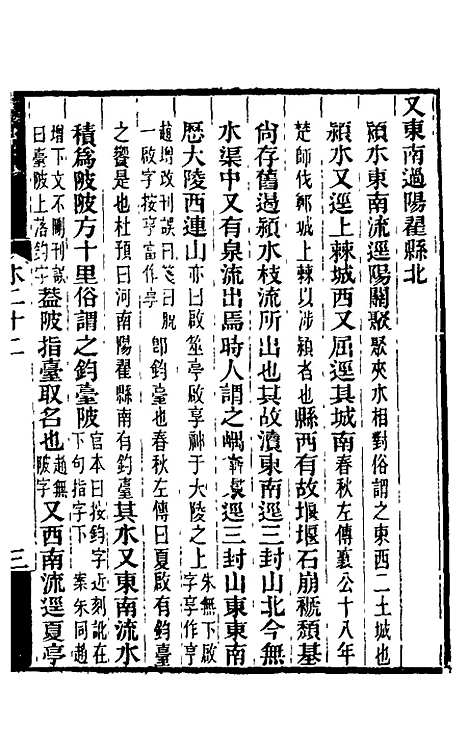 又東南過陽翟縣北
潁水東南流逕陽關聚聚夾水相對俗謂之東西二土城也
潁水又逕上棘城西又屈逕其城南春秋左傳襄公十八年
楚師伐鄭城上棘以涉潁者也縣西有故堰堰石崩褫頽基
尚存舊遏潁水枝流所出也其故瀆東南逕三封山北今無
水渠中又有泉流出焉時人謂之嵎逕三封山東東南
歷大陵西連山亦曰啟筮亭啟享神于大陵之上朱無下啟字享作亨
趙增改刊誤曰脫一啟字按亨當作享即鈞臺也春秋左傳曰夏啟有鈞臺
之饗是也杜預曰河南陽翟縣南有鈞臺其水又東南流水
積爲陂陂方十里俗謂之鈞臺陂官本曰按鈞字近刻訛在下句指字下案朱同趙
增下文不刪刊誤曰臺陂上落鈞字葢陂指臺取名也趙無陂字又西南流逕夏亭
水二十二
三